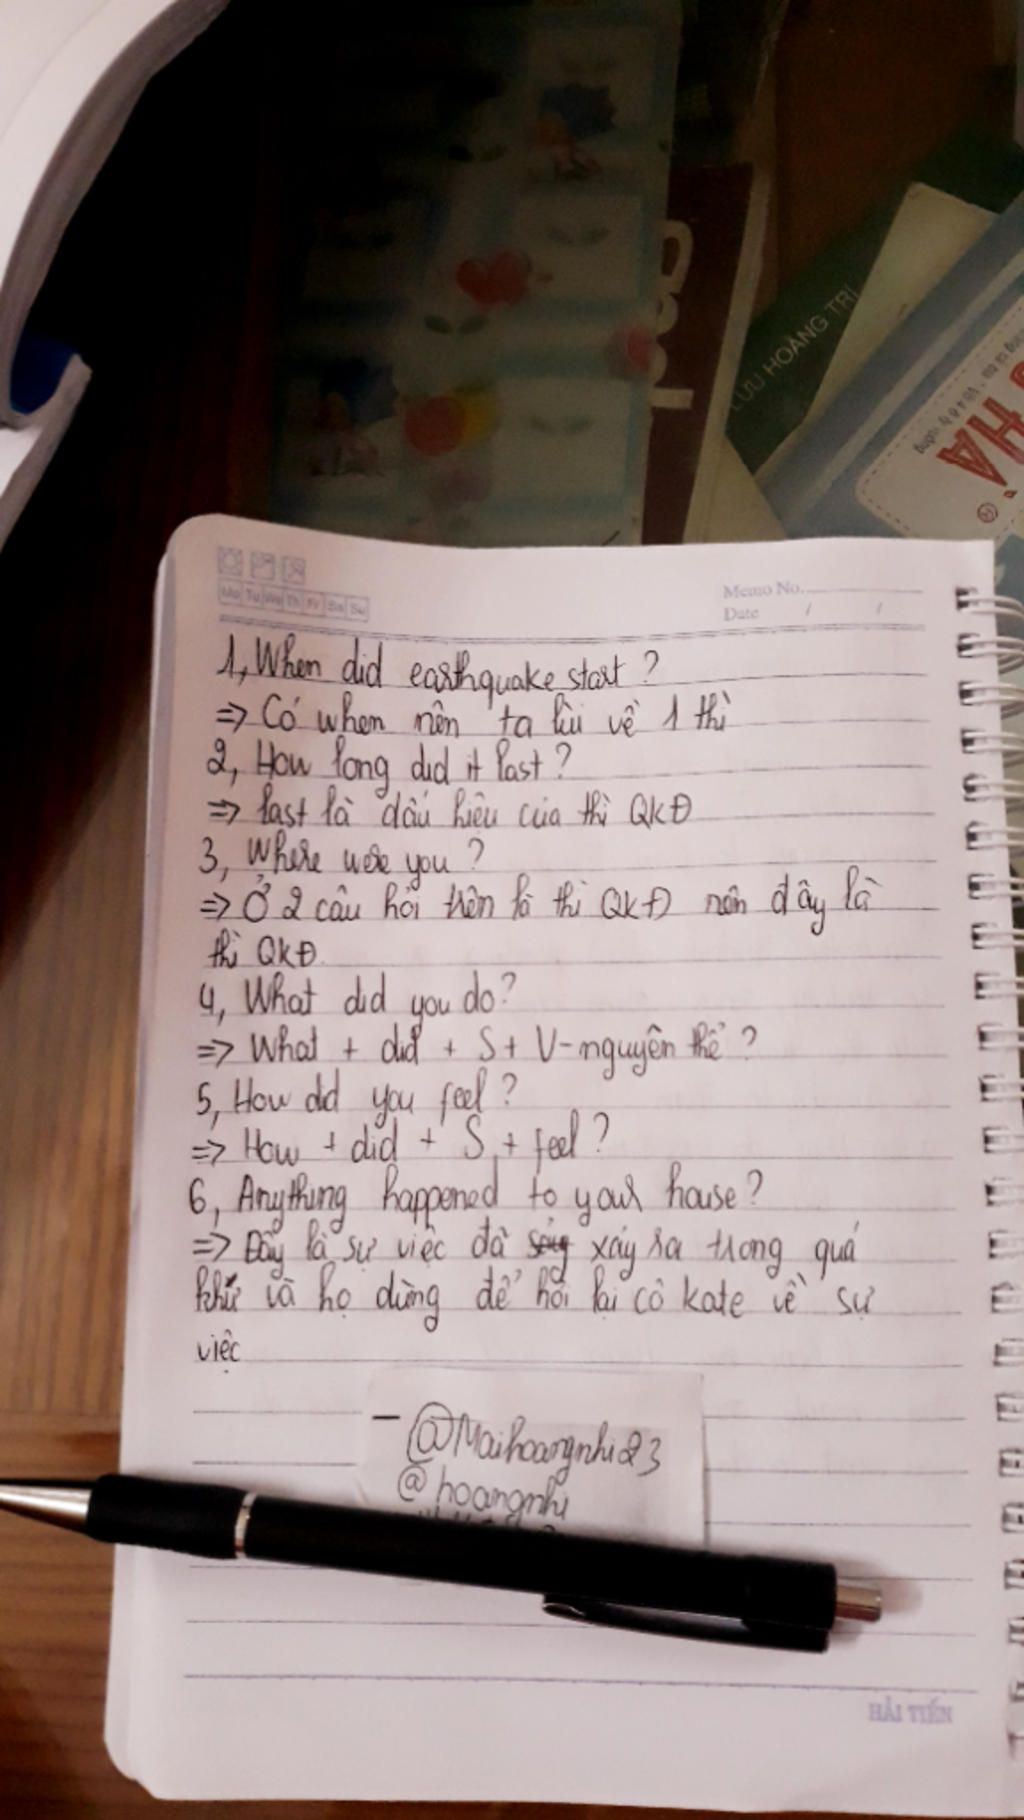 LƯU HOÀNG TRÍ
HA
Mo Tu We Th Fr Sa Su
Memo No.
Date / /
1, When did earthquake start ?
=> Có when nên ta lùi về 1 thì
2, How long did it last ?
=> last là dấu hiệu của thì QKĐ
3, Where were you ?
=> Ở 2 câu hỏi trên là thì QKĐ nên đây là
thì QKĐ
4, What did you do ?
=> What + did + S + V-nguyên thể ?
5, How did you feel ?
=> How + did + S + feel ?
6, Anything happened to your house ?
=> Đây là sự việc đã xảy ra trong quá
khứ và họ dừng để hỏi lại cô kate về sự
việc
- @Maihoangnhi23
@hoangnhi
HẢI TIẾN